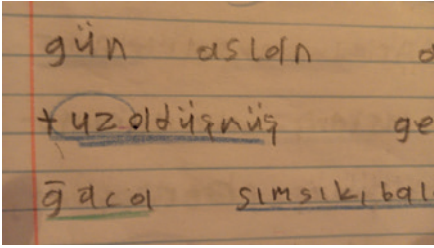 gün aslan
tuzoldüşmüş ge
ğaca sımsıkı bal